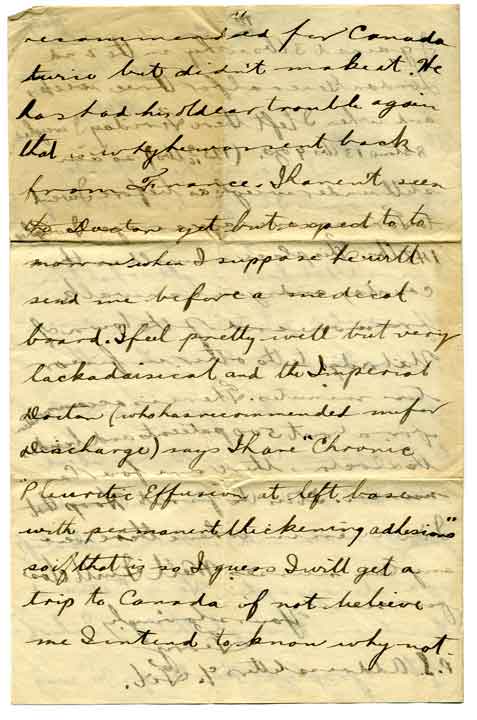 recommended for Canada
twice but didn't make it. He
has had his old ear trouble again
that is why he was sent back
from France. I haven't seen
the Doctor yet but expect to to
morrow when I suppose he will
send me before a medical
board. I feel pretty well but very
lackadaisical and the Imperial
Doctor (who has recommended me for
Discharge) says I have "Chronic
"Pleuritic Effusion at left base
with permanent thickening adhesions"
so if that is so I guess I will get a
trip to Canada if not believe
me I intend to know why not.